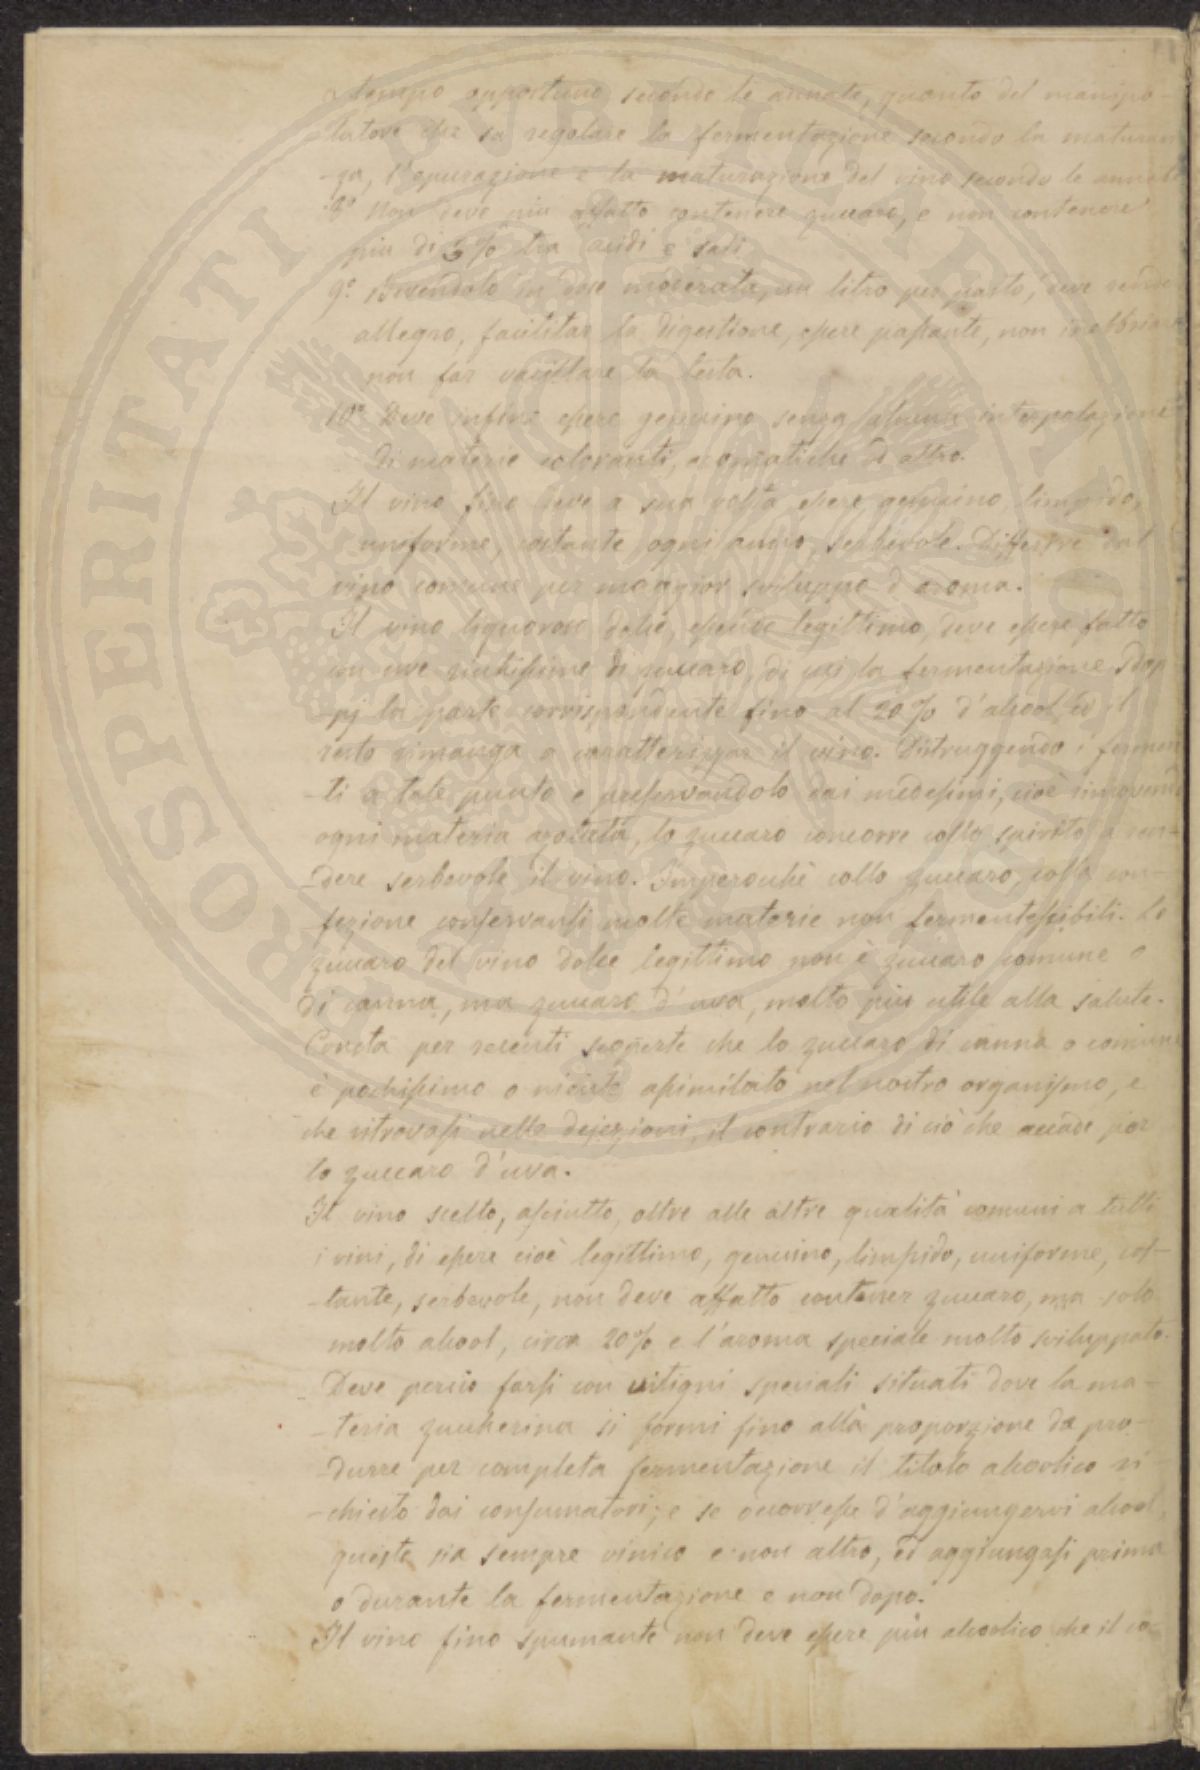 a tempo opportuno secondo le annate, quanto del manipo-
-latore che sa regolare la fermentazione secondo la maturan
-za, l'epurazione e la maturazione del vino secondo le annate
8º Non deve più affatto contenere zuccaro, e non contenere
più di 5% tra acidi e sali
9º Bevendolo in dose moderata, un litro per pasto, deve render
allegro, facilitar la digestione, essere passante, non inebbriare
non far vacillare la testa.
10º Deve infine essere genuino senza alcuna interpolazione
di materie coloranti, aromatiche od altro.
Il vino fino deve a sua volta essere genuino limpido,
uniforme, costante ogni anno, serbevole. Differire dal
vino comune per maggior sviluppo d'aroma.
Il vino liquoroso dolce, essendo legittimo, deve essere fatto
con uve ricchissime di zuccaro, di cui la fermentazione dop-
-pj la parte corrispondente fino al 20% d'alcool ed il
resto rimanga a caratterizzar il vino. Distruggendo i fermen
-ti a tale punto e preservandolo dai medesimi, cioè rimovendo
ogni materia azotata, lo zuccaro concorre collo spirito a ren-
-dere serbevole il vino. Imperocchè collo zuccaro, colla con-
-fezione conservansi molte materie non fermentescibili. Lo
zuccaro del vino dolce legittimo non è zuccaro comune o
di canna, ma zuccaro d'uva, molto più utile alla salute.
Consta per recenti scoperte che lo zuccaro di canna o comune
è pochissimo o niente assimilato nel nostro organismo, e
che ritrovasi nelle dejezioni, il contrario di ciò che accade per
lo zuccaro d'uva.
Il vino scelto, asciutto, oltre alle altre qualità comuni a tutti
i vini, di essere cioè legittimo, genuino, limpido, uniforme, cos-
-tante, serbevole, non deve affatto contener zuccaro, ma solo
molto alcool, circa 20% e l'aroma speciale molto sviluppato.
Deve perciò farsi con vitigni speciali situati dove la ma-
-teria zuccherina si formi fino alla proporzione da pro-
-durre per completa fermentazione il titolo alcoolico ri-
-chiesto dai consumatori; e se occorresse d'aggiungervi alcool,
questo sia sempre vinico e non altro, ed aggiungasi prima
o durante la fermentazione e non dopo.
Il vino fino spumante non deve essere più alcoolico che il co-
PROSPERITATI PUBLICAE AUGENDAE